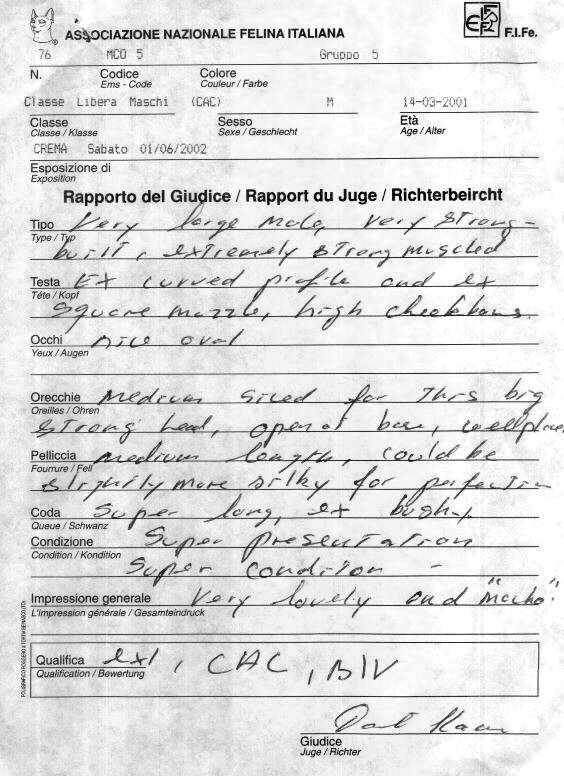 ASSOCIAZIONE NAZIONALE FELINA ITALIANA
F.I.Fe.
76 MCO 5 Gruppo 5
N. Codice Colore
Ems - Code Couleur / Farbe
Classe Libera Maschi (CAC) M 14-03-2001
Classe Sesso Età
Classe / Klasse Sexe / Geschlecht Age / Alter
CREMA Sabato 01/06/2002
Esposizione di
Exposition
Rapporto del Giudice / Rapport du Juge / Richterbeircht
Tipo Very large male, very strong-
Type / Typ
built, extremely strong muscled
Testa Ex curved profile and ex
Téte / Kopf
square muzzle, high cheekbons.
Occhi nice oval
Yeux / Augen
Orecchie medium sized for this big
Oreilles / Ohren
strong head, open at base, wellplac
Pelliccia medium length, could be
Fourrure / Fell
slightly more silky for perfection
Coda Super long, ex bushy
Queue / Schwanz
Condizione Super presentation
Condition / Kondition
Super condition -
Impressione generale Very lovely and "macho"
L'impression générale / Gesamteindruck
Qualifica ex1, CAC, BIV
Qualification / Bewertung
Giudice
Juge / Richter